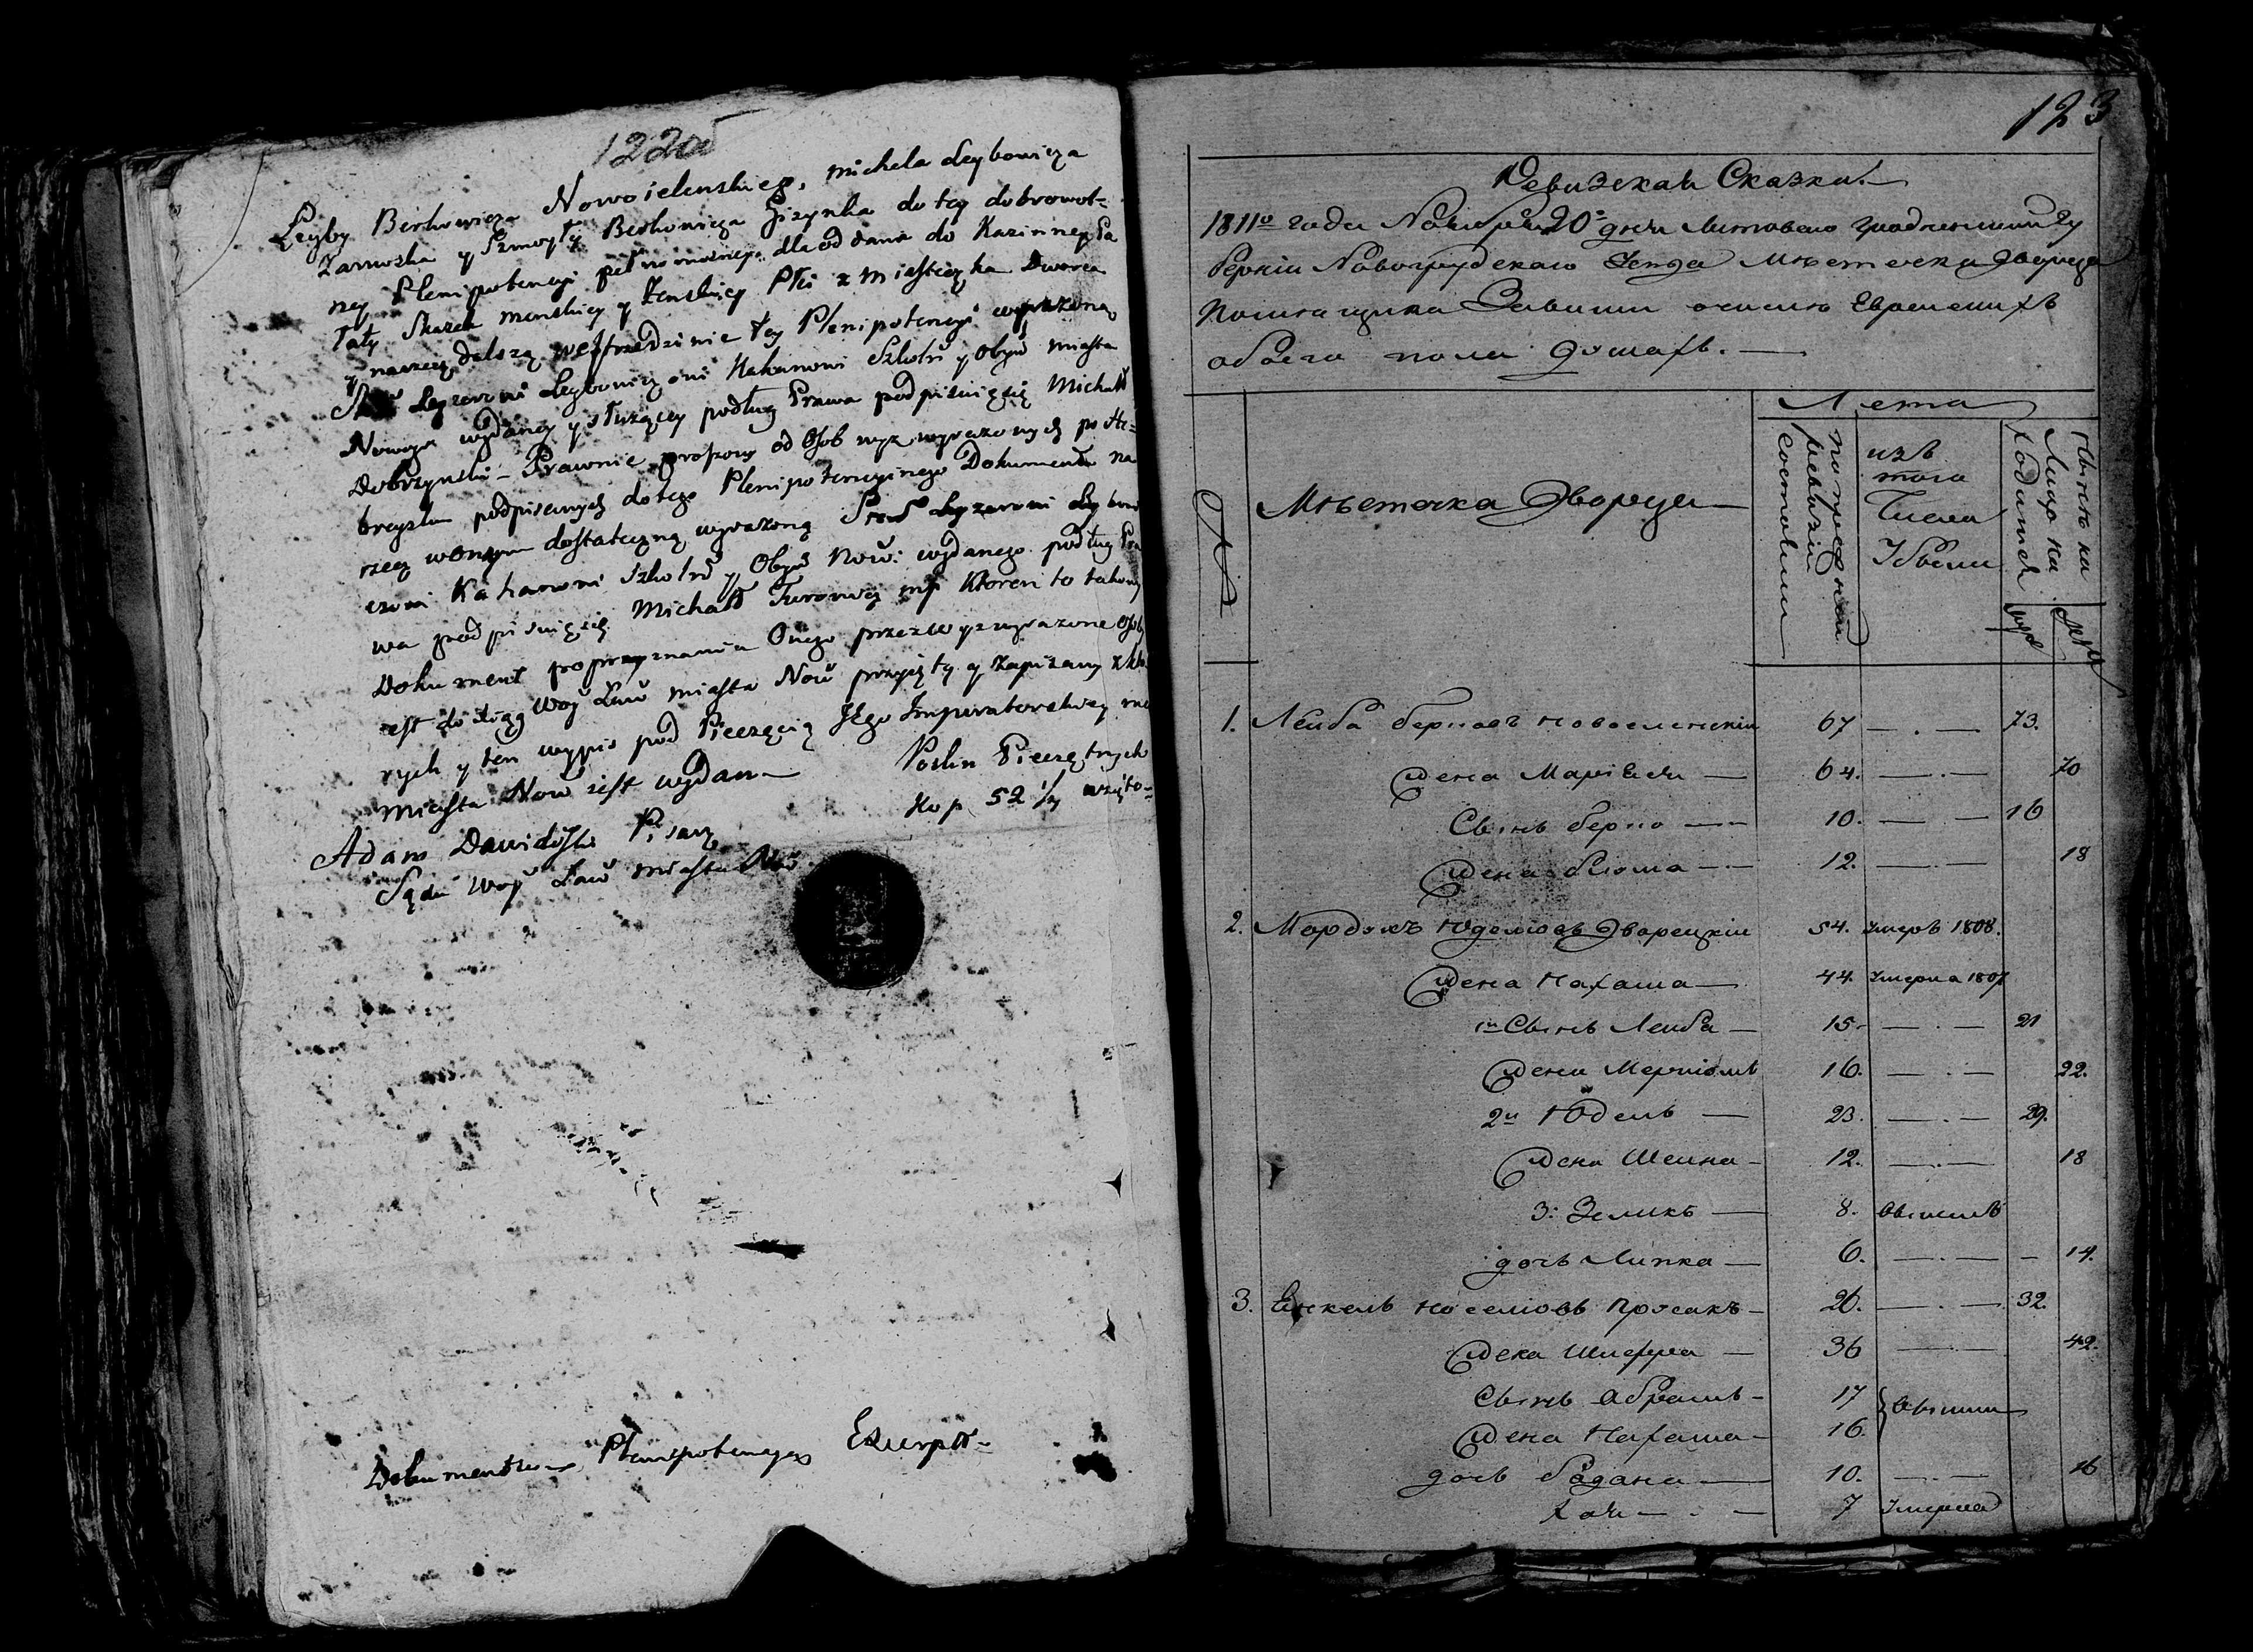 122об
Leyby Berkowicza Nowosieleńskiego, Michela Leybowicza
Zamoska y Szmoyły Berkowicza Gizynka do tey dobrowol=
ney Plenipotencyi pełnomożney dla oddania do Kazionney Pa
łaty Skazek męnskiey y Zenskiey Płci z Miasteczka Dworca
y naszey dalszą we Trzedzinie tey Plenipotencyi wyrażoną
Leyzerowi Leybowiczowi Kahanowi Szkolń y Obyw miasta
Nowogr wydaney y służącey podług Prawa podpisuię się Michał
Dobrzynski – Prawnie proszony od Osob wyż wyrażonych po He=
breysku podpisanych do tego Plenipotencyinego Dokumentu na
rzecz wonym dostateczną wyrażoną Leyzerowi Leybowi
czowi Kahanowi Szkolń y Obyw Now: wydanego podług Pra
wa podpisuię się Michał Turowicz mp Ktoren to takowy
Dokument po przyznaniu Onego przez wyż wyrażone Osoby
iest do Xiąg Woy Ław miasta Now przyięty y zapisany z kto
rych y ten wypis pod Pieczęcią Jego Imperatorskiey
miasta Now iest wydan —
Poszlin Pieczętnych
Kop 52 1/2 wzięto=
Adam Dawidoski Pisarz
Sądu Woy Ław miasta Now
Dokumentu Plenipotencyi Exerpt=
123
Ревизская Сказка.—
1811го года Ноября 20го дня Литовско Гродненской Гу
берніи Новогрудскаго Уезда Мѣстечка Дворца
Помещика Завиши о числе Евреискихъ
обоего пола душахъ.—
№
Мѣстечка Дворца
Лета
по прежней ревизіи состояли
изъ того Числа Убыли
Ныне на Лицо находится
муж
жен
1. Леиба берковъ новоселенскіи 67 — . — 73.
Жена Маріася — 64. — . — 70
Сынъ берко — 10. — — 16
Жена блюма — 12. — . — 18
2. Мордухъ Юделювъ Дворецкіи 54. Умеръ 1808.
Жена Нахама — 44. Умерла 1807
1й Сынъ Леиба — 15 — . — 21
Жена Меріямъ 16. — . — 22.
2й Юдель — 23. — . — 29.
Жена Шеина — 12. — . — 18
3: Зеликъ — 8. Вышелъ
дочь Липка — 6. — . — — 14.
3. Енкель Носелювъ Прусакъ — 26. — . — 32.
Жена Шифра — 36 — . — 42.
Сынъ Абрамъ — 17 } Вышли
Жена Нахама — 16.
дочь бадана — 10. — . — 16
Хая — . — 7 Умерла